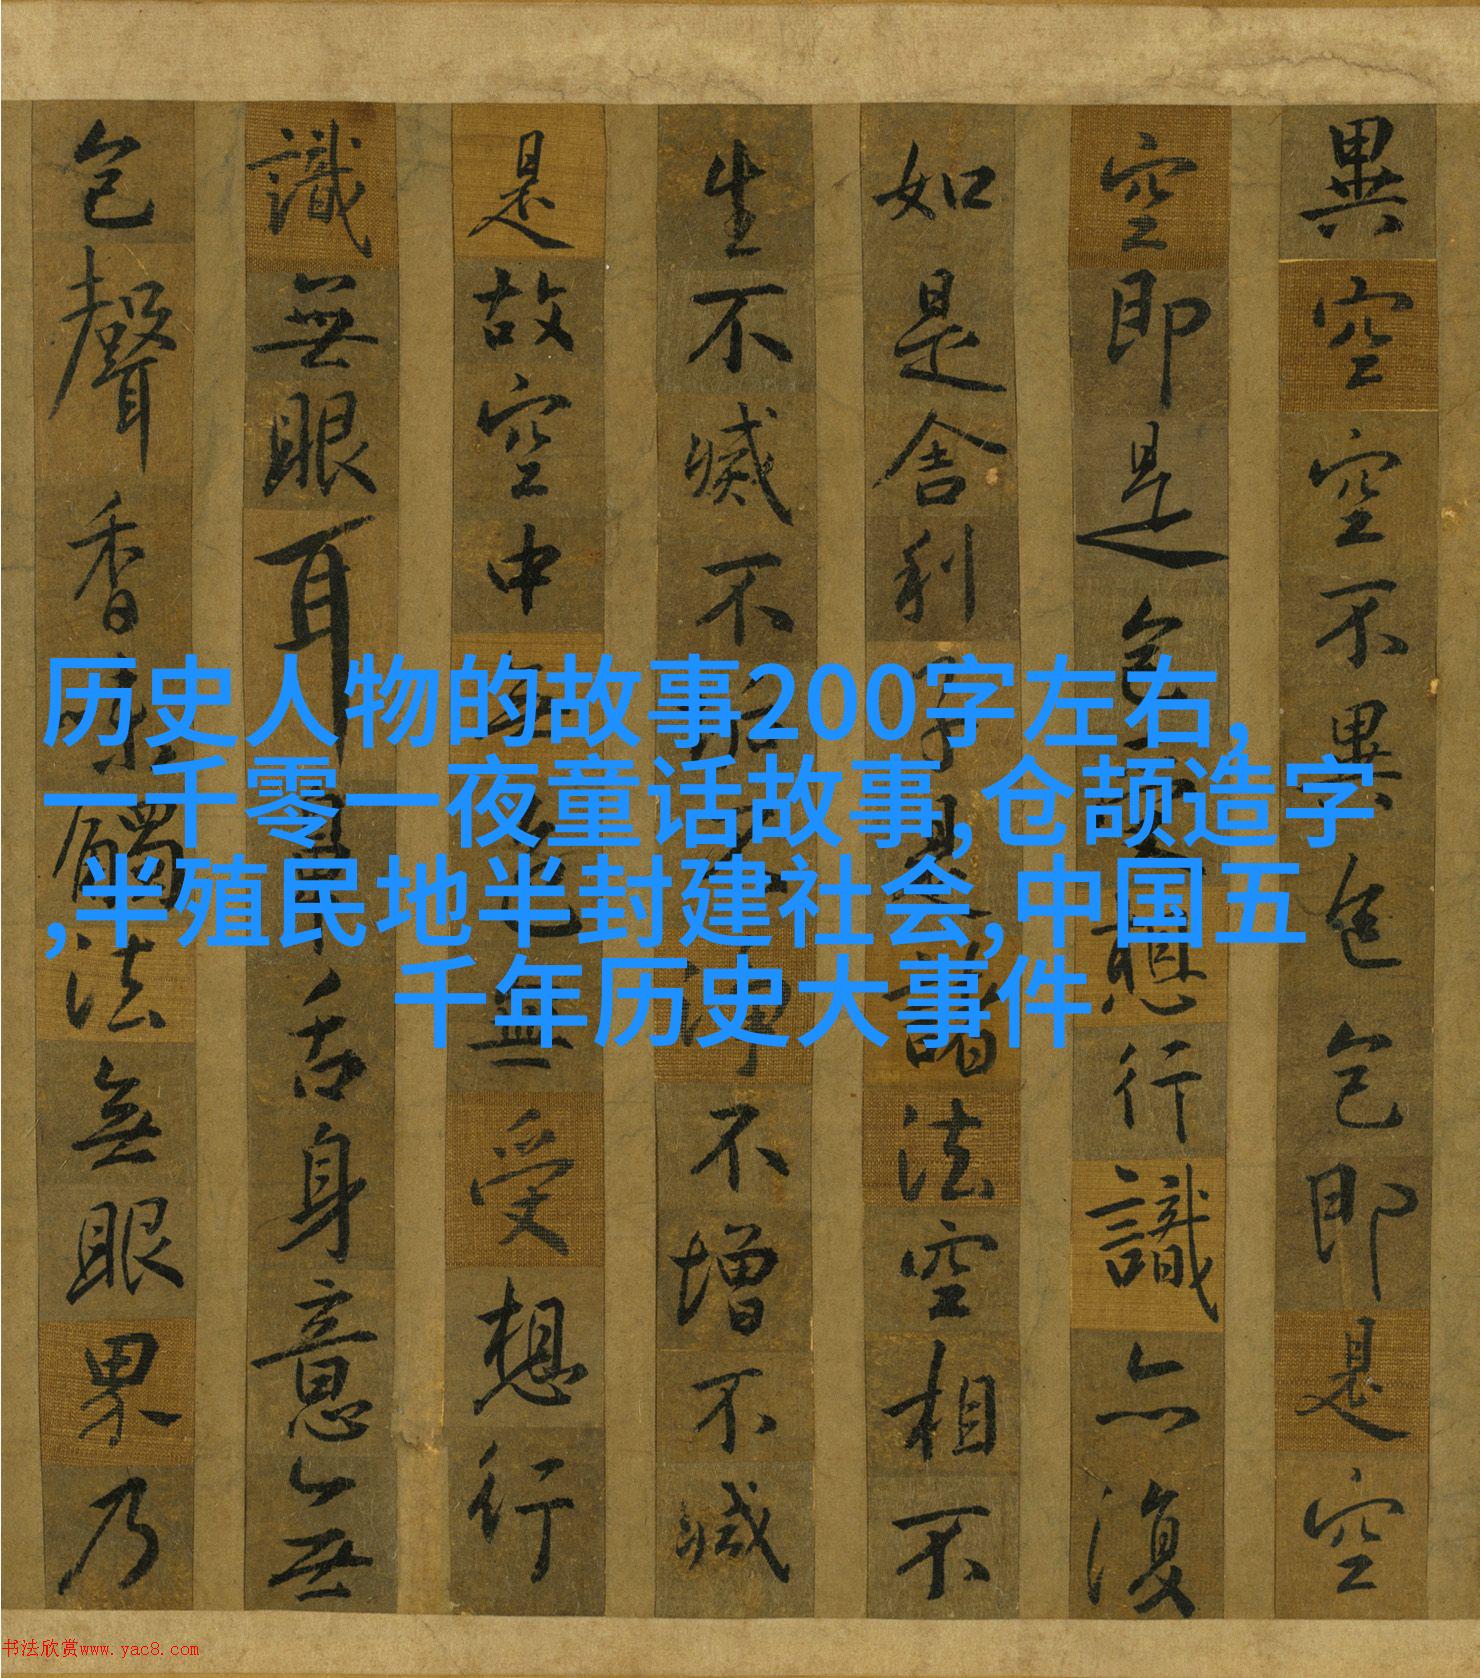 異空空不異色色即是空
空即是色受想行識亦復
如是舍利子是諸法空相不
生不滅不垢不淨不增不減
是故空中無色無受想行
識無眼耳鼻舌身意無
色聲香味觸法無眼界乃
历史人物的故事200字左右,
一千零一夜童话故事,仓颉造字
,半殖民地半封建社会,中国五
千年历史大事件
书法欣赏www.yac8.com